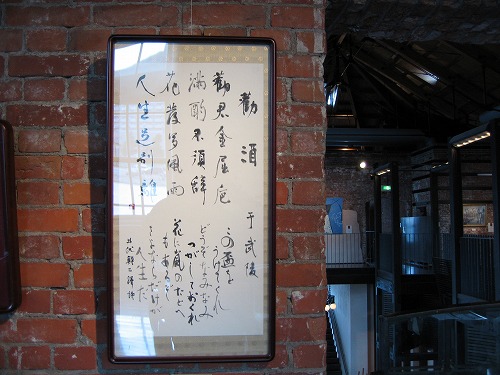 勸酒
于武陵
勸君金屈卮
滿酌不須辭
花發多風雨
人生足別離
この盃を
うけてくれ
どうぞなみなみ
つがしておくれ
花に嵐のたとへ
もあるぞ
さよならだけが
人生だ
井伏鱒二譯詩